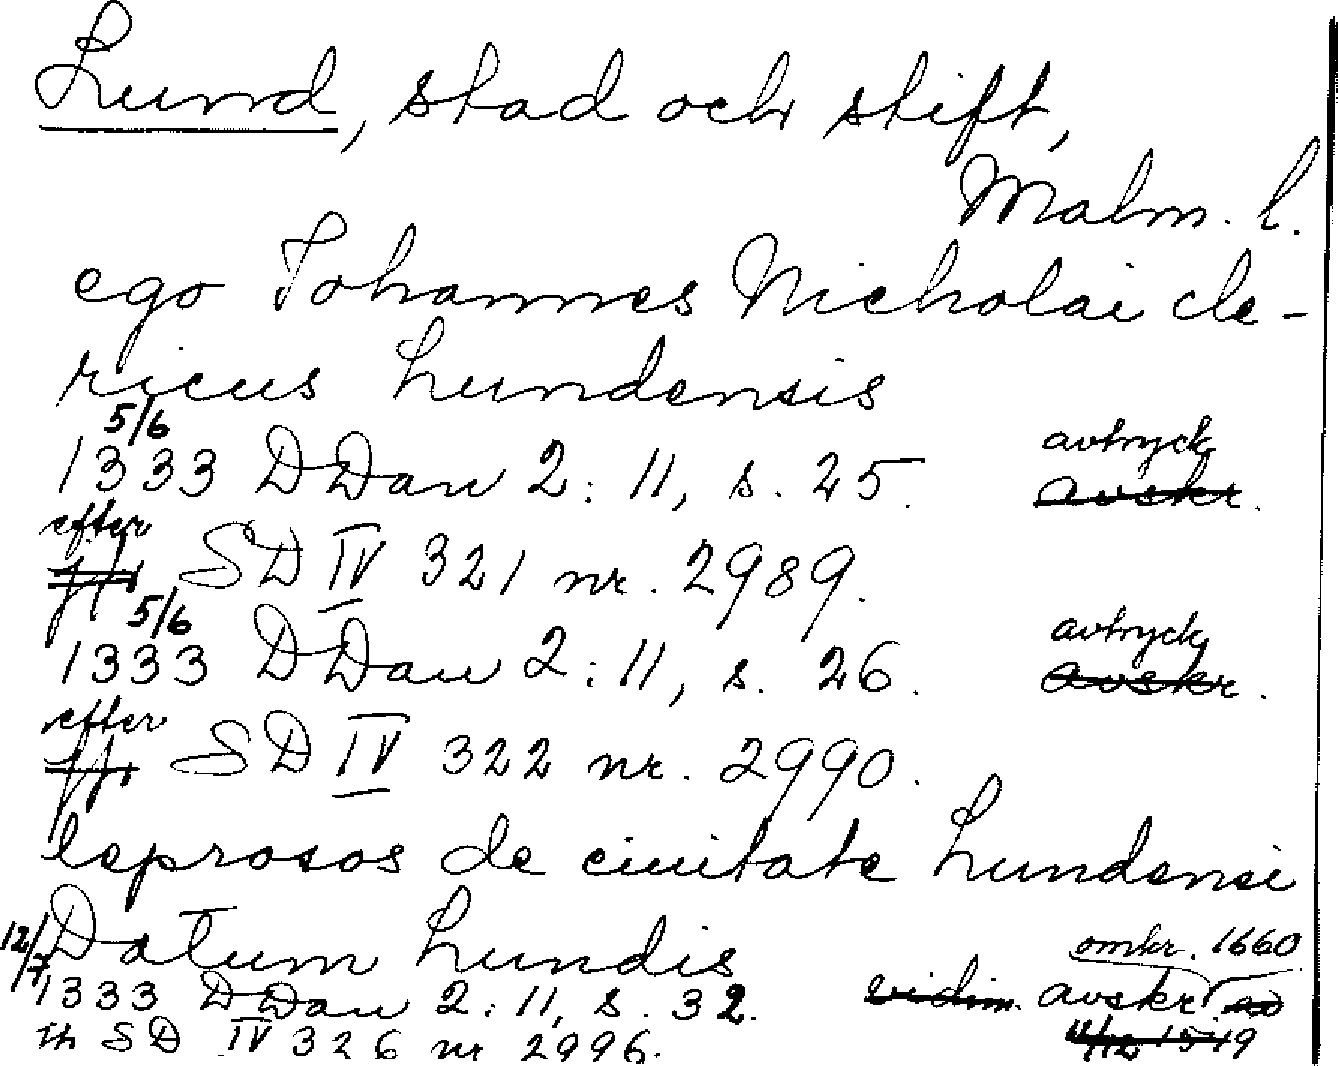 Lund, stad och stift,
Malm. l.
ego Johannes Nicholai cle-
ricus Lundensis
5/6
1333 DDan 2:11, s. 25. avtryck
avskr.
efter
jfr SD IV 321 nr. 2989.
5/6
1333 DDan 2:11, s. 26. avtryck
avskr.
efter
jfr SD IV 322 nr. 2990.
leprosos de ciuitate Lundensi
Datum Lundis
12/7 omkr. 1660
1333 DDan 2:11, s. 32. vidim. avskr.
SD IV 326 nr 2996. 11/12 1549